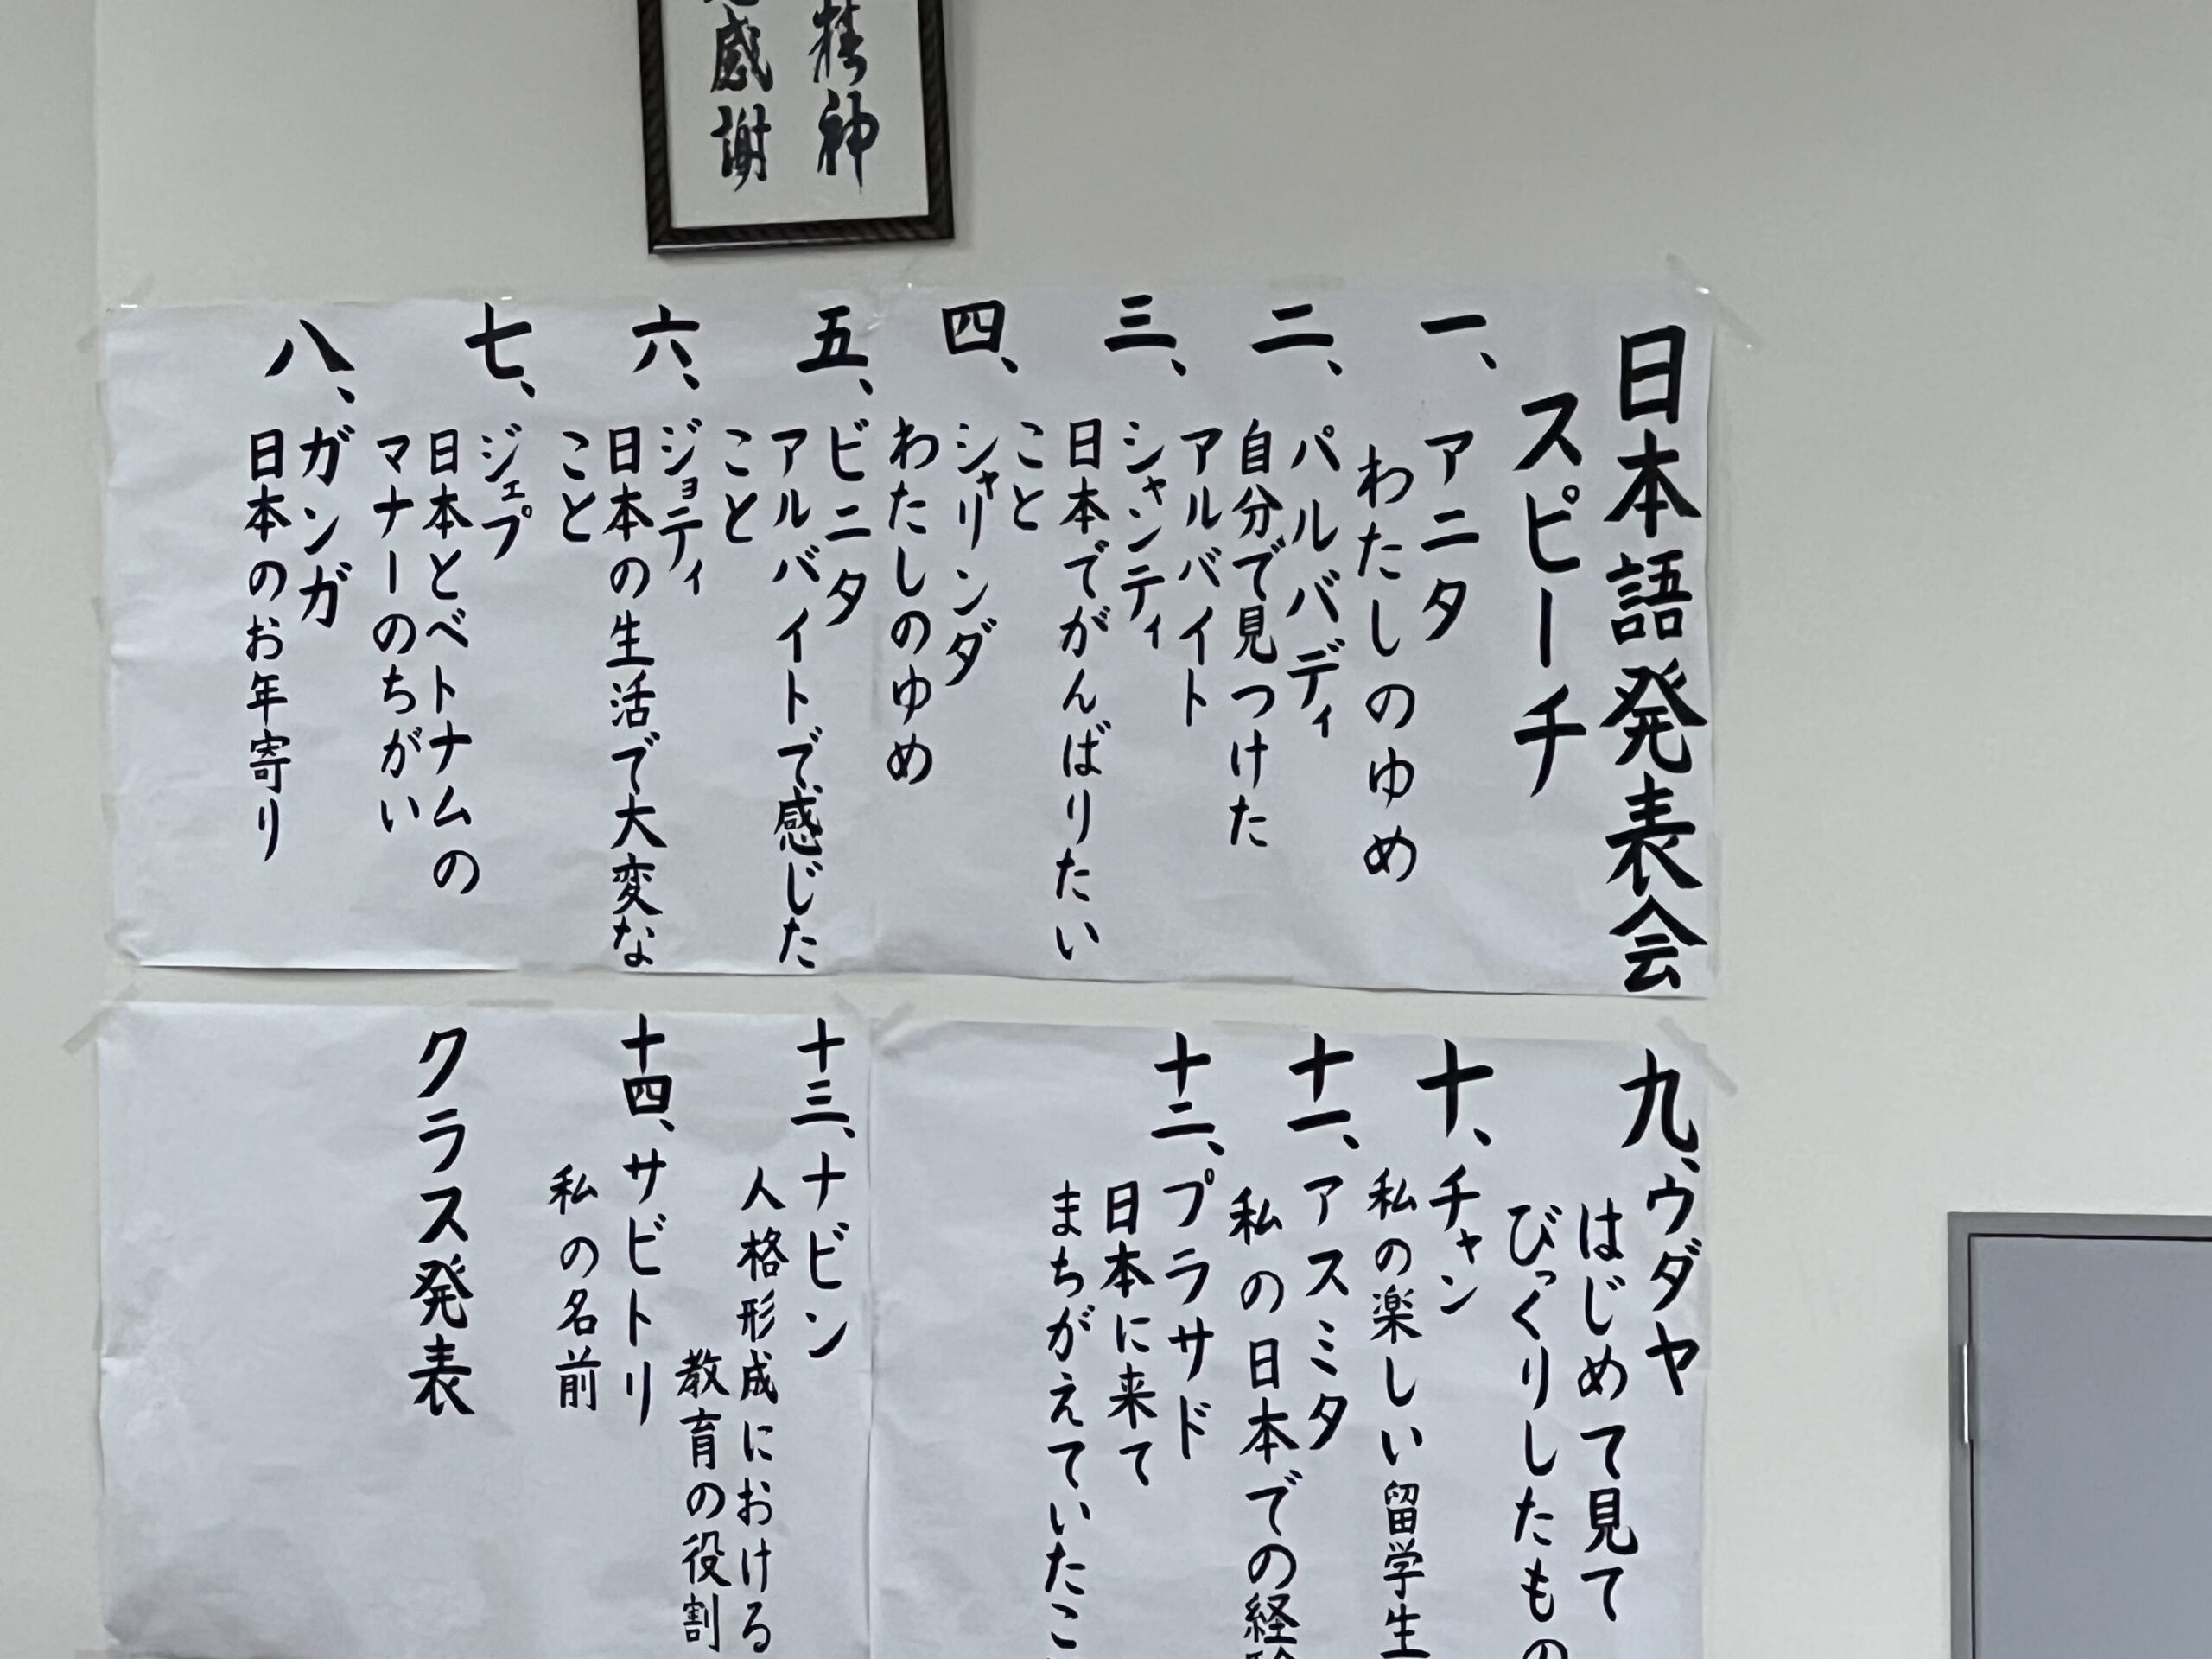 精神
感謝
日本語発表会
スピーチ
一、アニタ
わたしのゆめ
二、パルバディ
自分で見つけた
アルバイト
三、シャンティ
日本でがんばりたい
こと
四、シャリンダ
わたしのゆめ
五、ビニタ
アルバイトで感じた
こと
六、ジョティ
日本の生活で大変な
こと
七、ジェプ
日本とベトナムの
マナーのちがい
八、ガンガ
日本のお年寄り
九、ウダヤ
はじめて見て
びっくりしたもの
十、チャン
私の楽しい留学生
十一、アスミタ
私の日本での経験
十二、プラサド
日本に来て
まちがえていたこ
十三、ナビン
人格形成における
教育の役割
十四、サビトリ
私の名前
クラス発表